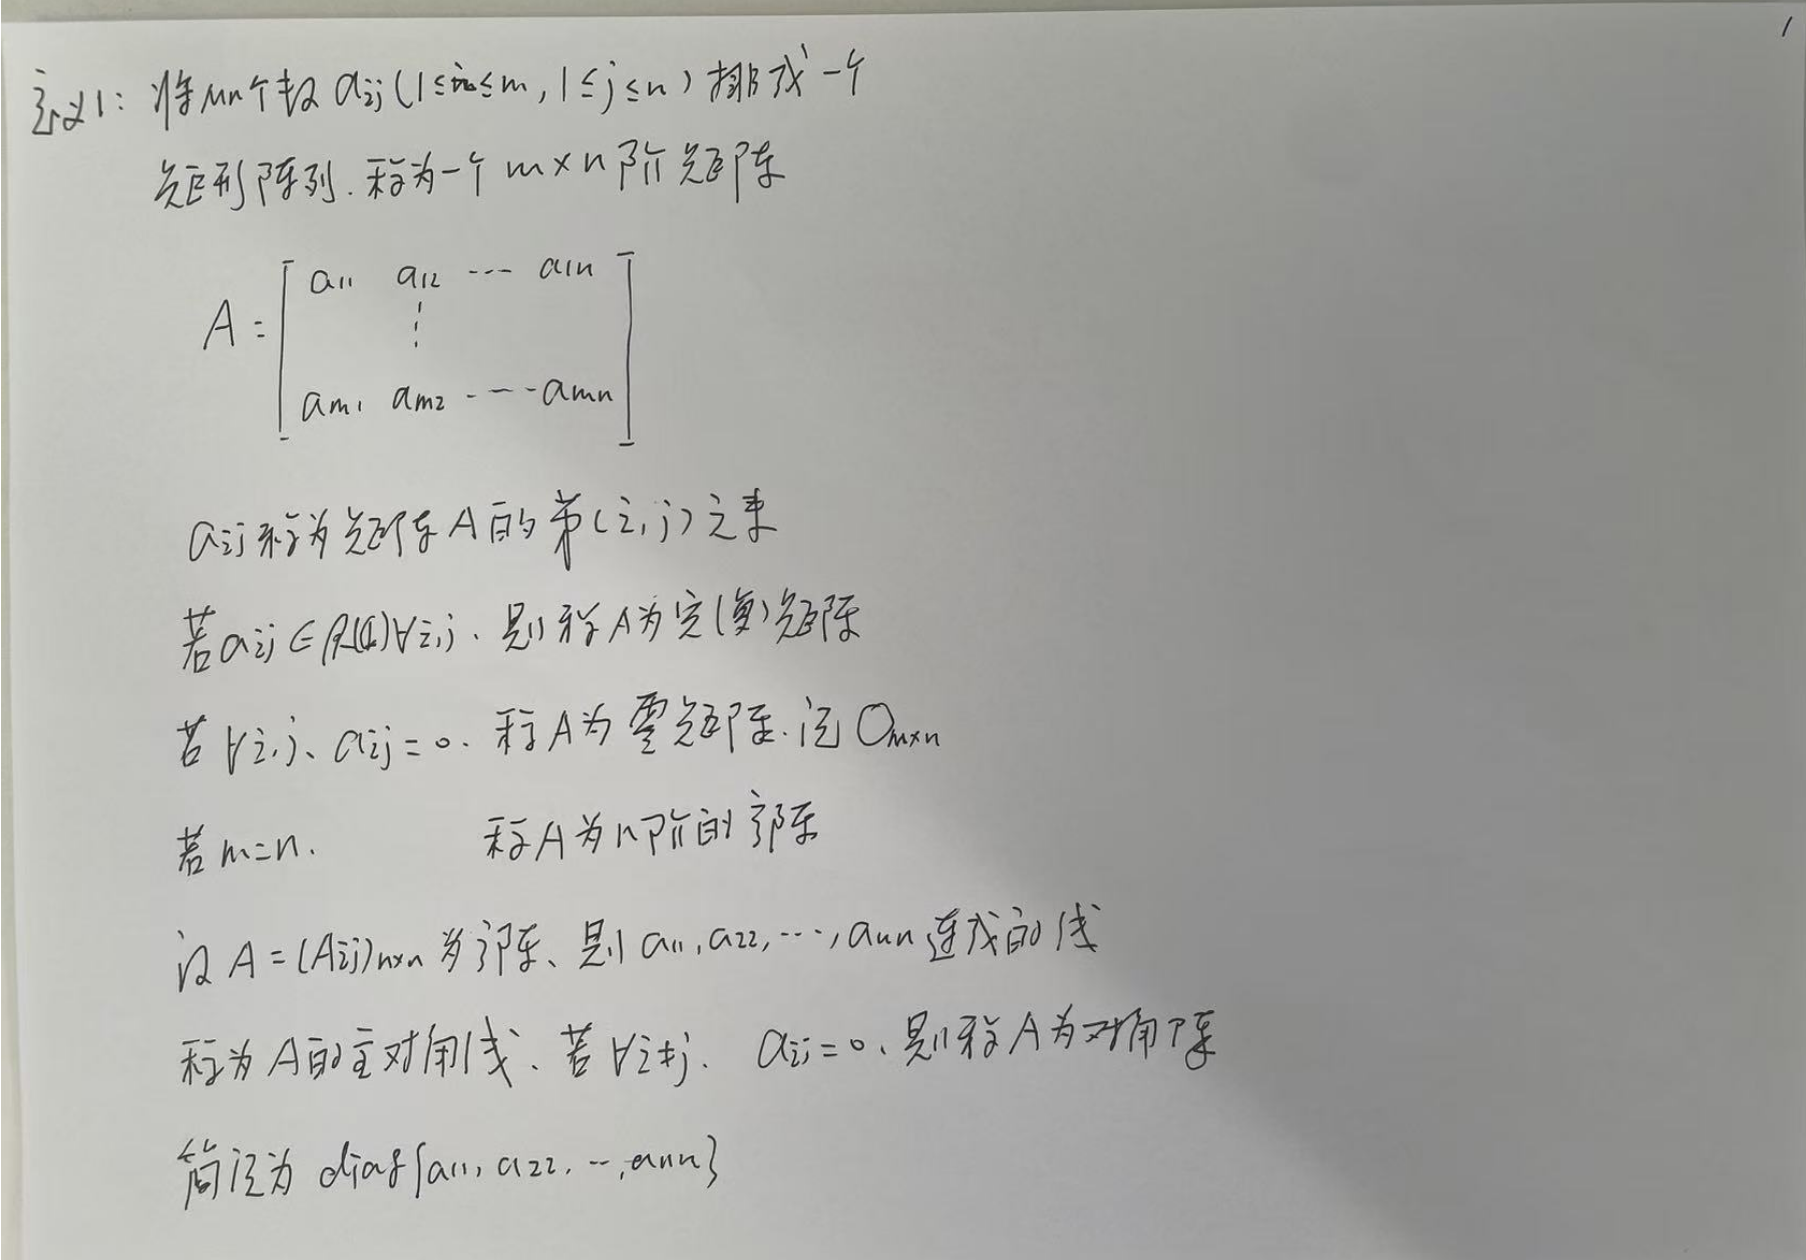 1
定义1: 将mn个数 aij (1≤i≤m, 1≤j≤n) 排成一个
矩形阵列. 称为一个 m×n 阶矩阵
A = [ a11 a12 ··· a1n
⋮
am1 am2 ···· amn ]
aij 称为矩阵A的第(i,j)元素
若aij∈R(C)∀i,j. 则称A为实(复)矩阵
若∀i,j、aij=0. 称A为零矩阵. 记 Om×n
若m=n. 称A为n阶的方阵
设A=(Aij)n×n为方阵、则 a11, a22, ···, ann 连成的线
称为A的主对角线、若∀i≠j. aij=0、则称A为对角阵
简记为 diag{a11, a22, ···, ann}